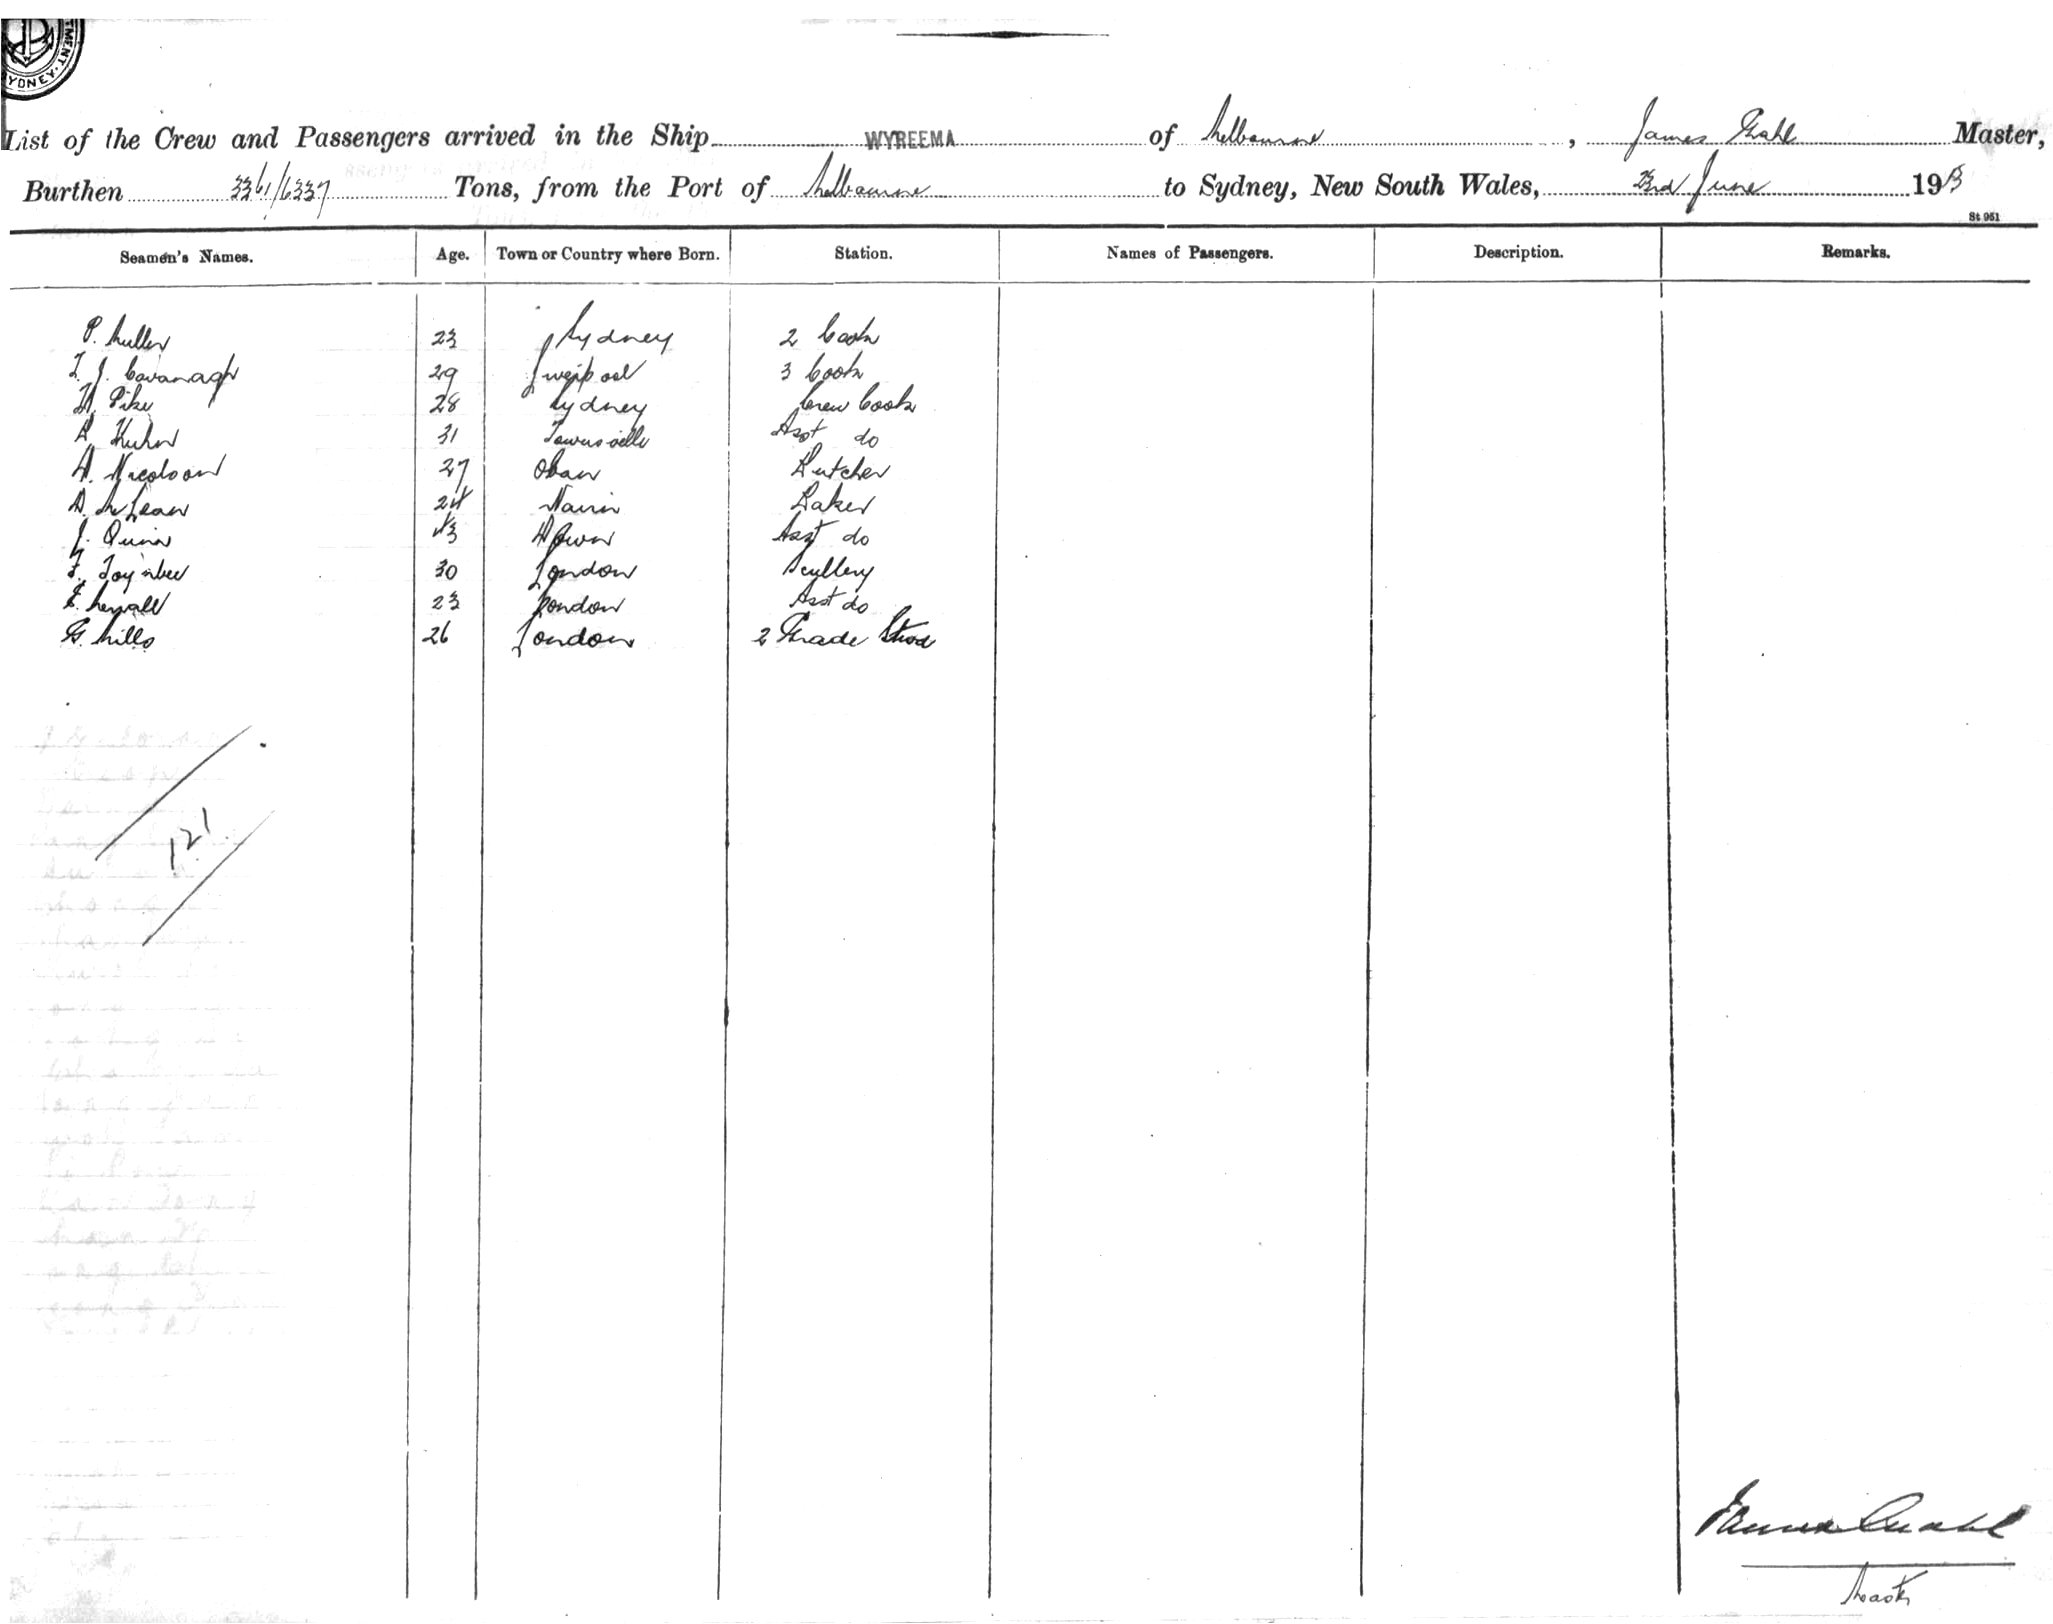 MENT. SYDNEY.
List of the Crew and Passengers arrived in the Ship WYREEMA of Melbourne, James Grahl Master,
Burthen 3361/6337 Tons, from the Port of Melbourne to Sydney, New South Wales, 23rd June 1913
St 951
Seamen's Names. Age. Town or Country where Born. Station. Names of Passengers. Description. Remarks.
P. Muller 23 Sydney 2 Cook
T. J. Cavanagh 29 Liverpool 3 Cook
H. Pike 28 Sydney Crew Cook
A. Kuhn 31 Townsville Asst do
A. Nicolson 27 Oban Butcher
D. McLean 24 Nairn Baker
J. Quinn 43 Down Asst do
F. Toynbee 30 London Scullery
E. 23 London Asst do
G. Mills 26 London 2 Grade Stwd
121
James Grahl
Master